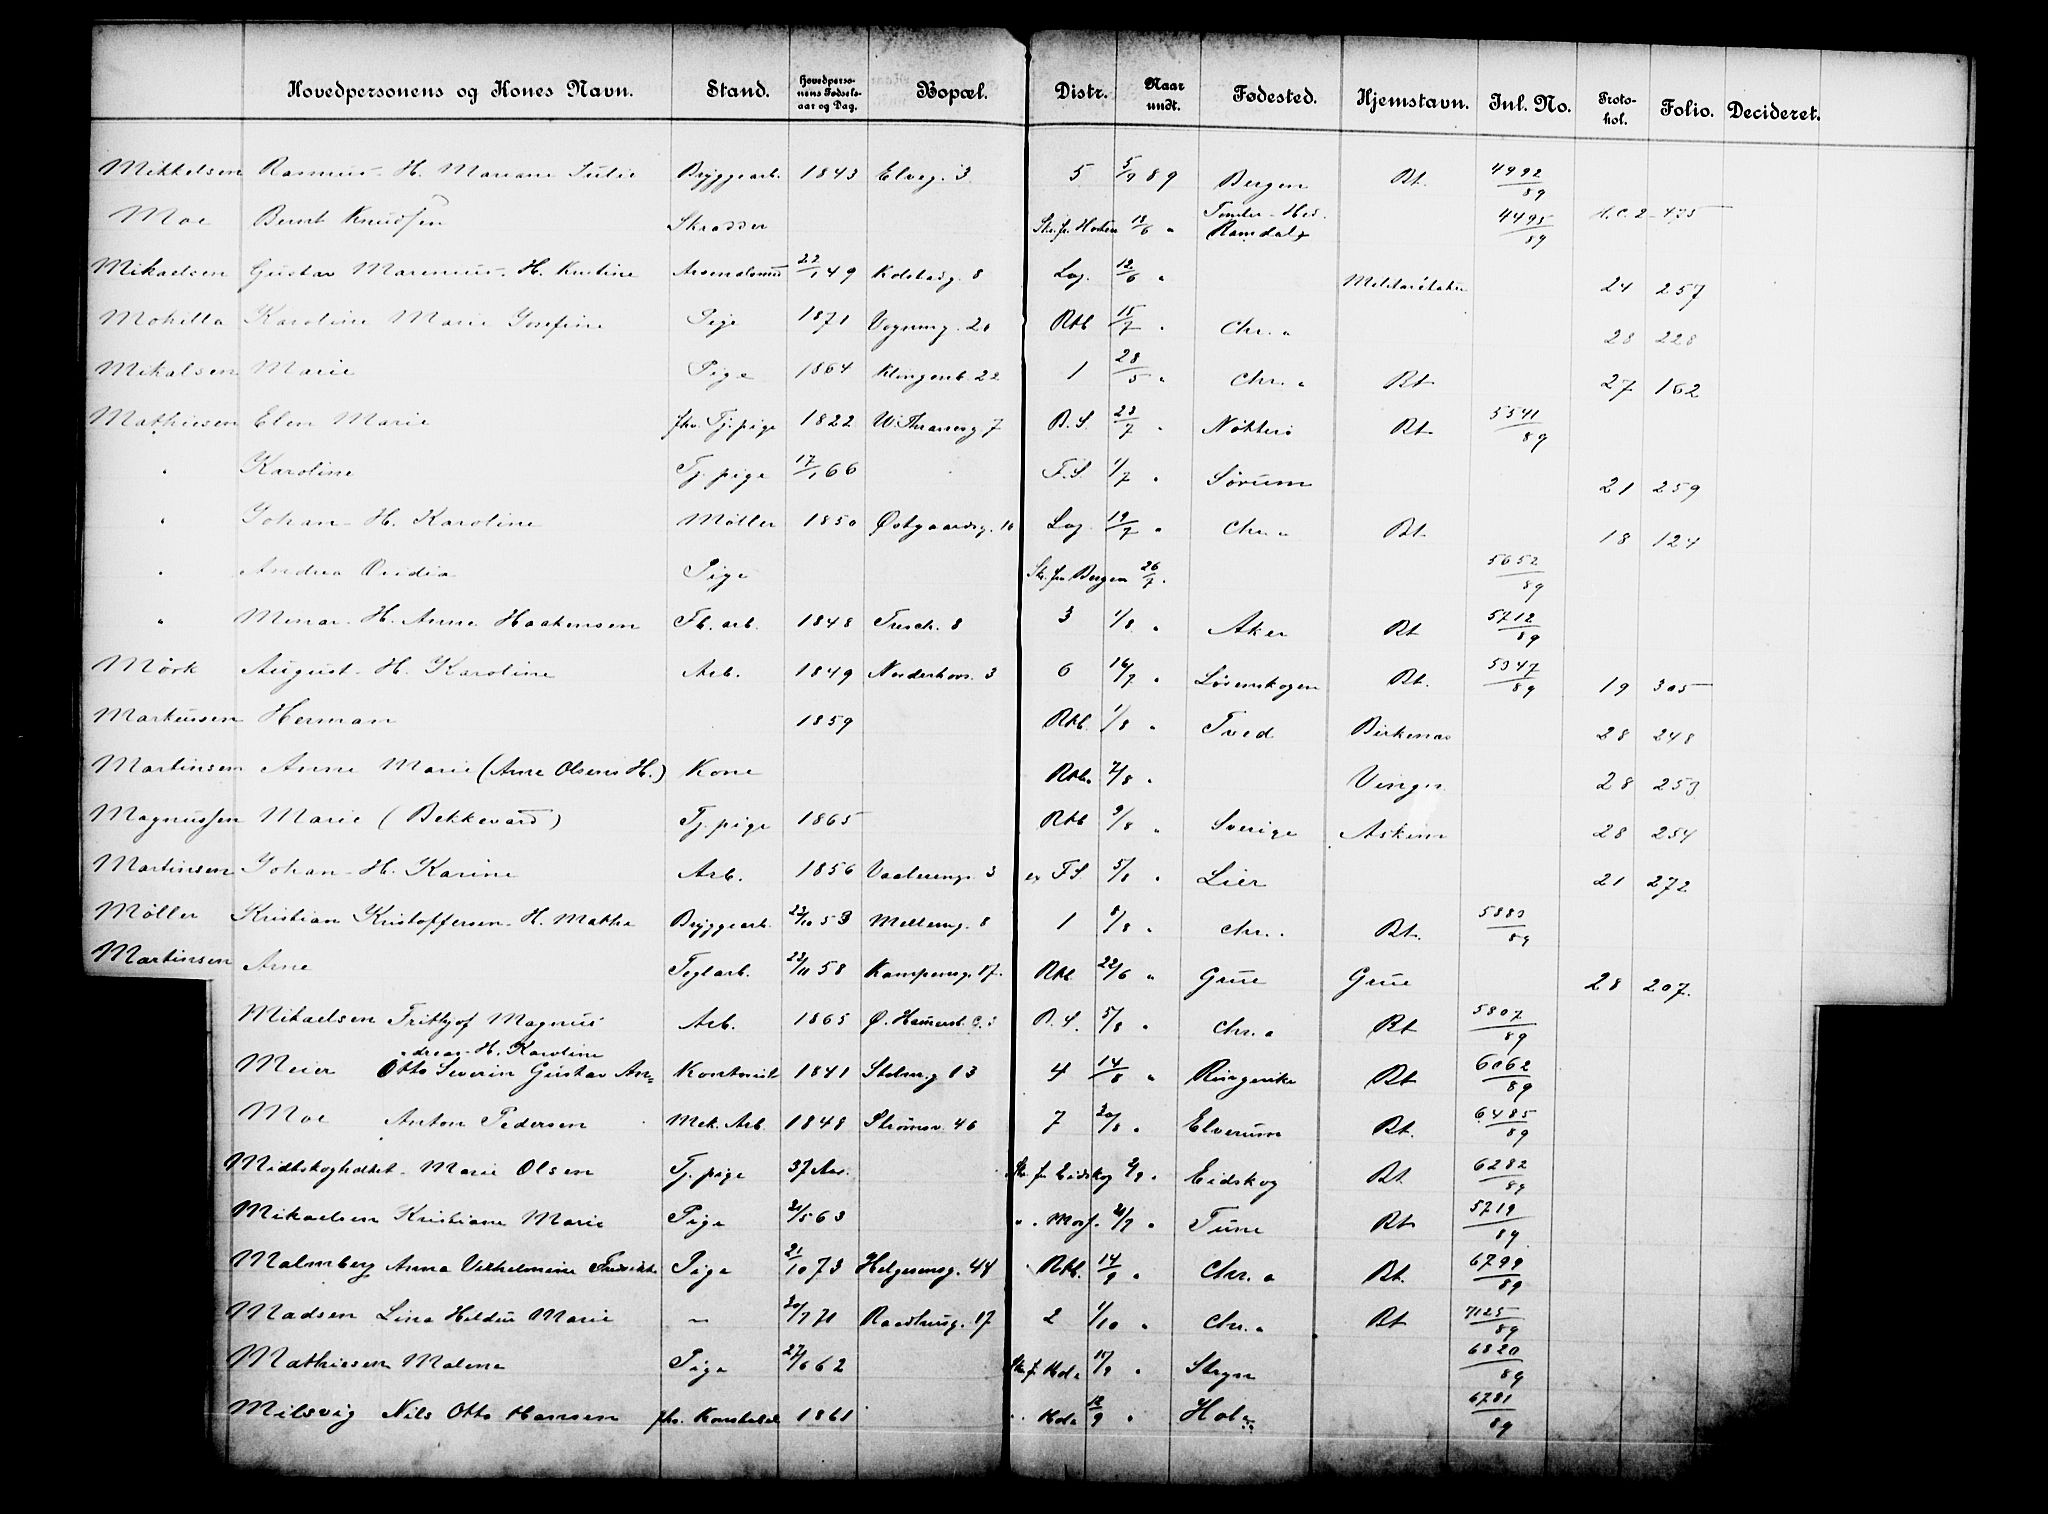 Hovedpersonens og Kones Navn. Stand. Hovedperso-nens Fødsels-aar og Dag. Bopæl. Distr. Naar undt. Fødested. Hjemstavn. Inl. No. Proto-kol. Folio. Decideret.
Mikkelsen Rasmus - H. Mariane Julie Bryggearb. 1843 Elveg. 3. 5 5/9 89 Bergen Bt. 4992/89
Moe Bernt Knudsen Skrædder Skr. fr. Horten 13/6 " 4495/89 H.C. 2 - 475
Mikaelsen Gustav Marenius - H. Kristine 22/1 49 Kolstadg. 8 Lag. 12/6 " 24 257
Mokilla Karoline Marie Josefine Pige 1871 Vognmg. 20 Rkb 15/7 " Chr.a 28 228
Mikalsen Marie Pige 1864 Klingenb. 22 1 28/5 " Chr.a Bt. 27 162
Mathiesen Elen Marie fhv. Tj.pige 1822 W. Thranesg 7 B.S. 23/7 " Nøtterø Bt. 5541/89
" Karoline Tj. pige 17/1 66 F.S. 1/7 " Sørum 21 259
" Johan - H. Karoline Møller 1850 Østgaardsg. 10 Lag. 19/7 " Chr.a Bt. 18 124
" Andrea Ovidia Pige Skr. fra Bergen 26/7 " 5652/89
" - H. Anne Haakensen Fb. arb. 1848 Tresch. 8 3 1/8 " Aker Bt. 5712/89
Mörk August - H. Karoline Arb. 1849 Norderhovs. 3 6 16/7 " Lörenskogen Bt. 5347/89 19 305
Markussen Herman 1859 Rkb. 1/8 " Tved Birkenæs 28 248
Martinsen Anne Marie (Arne Olsens H.) Kone Rkb. 7/8 " Vinger 28 253
Magnussen Marie (Bekkevard) Tj. pige 1865 Rkb 9/8 " Sverige Askim 28 254
Martinsen Johan - H. Karine Arb. 1856 Vaalereng. 3 F.S. 5/8 " Lier 21 272
Möller Kristian Kristoffersen - H. Mathea Bryggearb. 23/10 53 Mellemg. 8 1 8/8 " Chr.a Bt. 5883/89
Martinsen Arne Teglarb. 23/11 58 Kampensg. 17. Rkb 22/6 " Grue Grue 28 207.
Mikaelsen Frithjof Magnus Arb. 1865 B.S. 5/8 " Chr.a Bt 5807/89
dreas - H. Karoline
Meier Otto Severin Gustav An= 1841 Stolmg 13 4 14/8 " Ringerike Bt 6062/89
Moe Anton Pedersen Mek. Arb. 1848 Strömsv. 46 7 20/8 " Elverum Bt. 6485/89
Midtskogholtet - Marie Olsen Tj. pige 37 Aar. Skr. f. Eidskog 2/9 " Eidskog Bt. 6282/89
Mikaelsen Kristiane Marie Pige 2/5 63 " . Moss. 2/9 " Tune Bt 5719/89
Malmberg Anna Vilhelmine Fredrikke Pige 21/10 73 Helgesensg. 44 Rkb. 14/9 " Chr.a Bt. 6799/89
Madsen Lina Hildur Marie " 20/7 71 Raadhusg. 17 2 1/10 " Chr.a Bt 7125/89
Mathiesen Malene Pige 27/6 62 Skr. f. Hole 15/9 " Stryn 6820/89
Milsvig Nils Otto Hansen fhv. Konstabel 1861 " . Hole 12/9 " Hole 6781/89